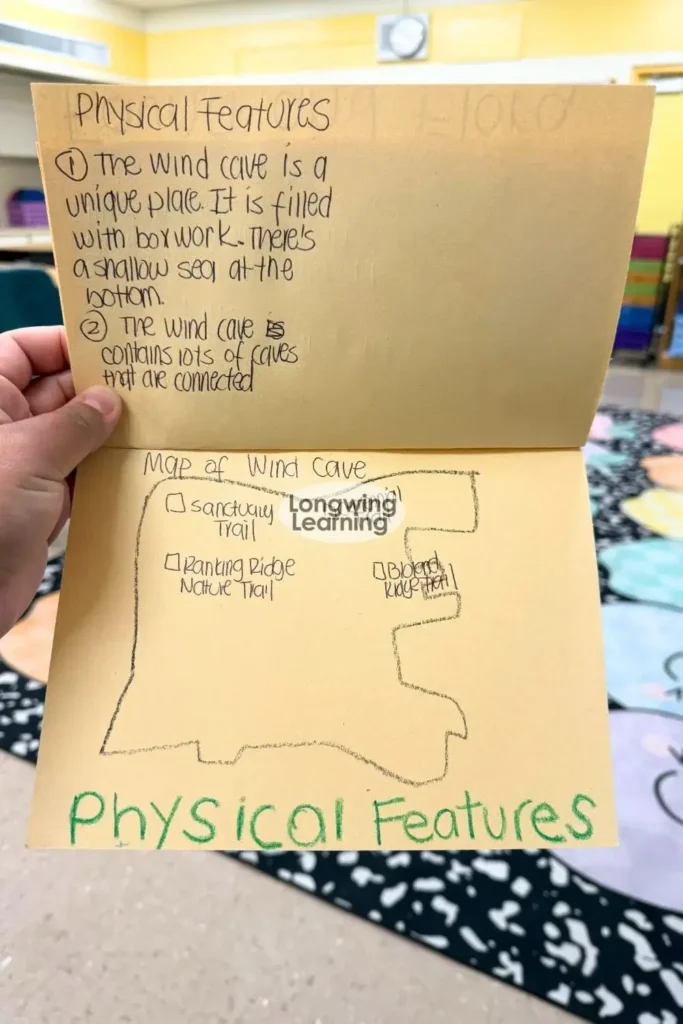 Physical Features
① The wind cave is a
unique place. It is filled
with boxwork. There's
a shallow sea at the
bottom.
② The wind cave is
contains lots of caves
that are connected
Map of Wind Cave
Sanctuary
Trail
Longwing
Learning
Ranking Ridge
Nature Trail
Ridge Trail
Physical Features